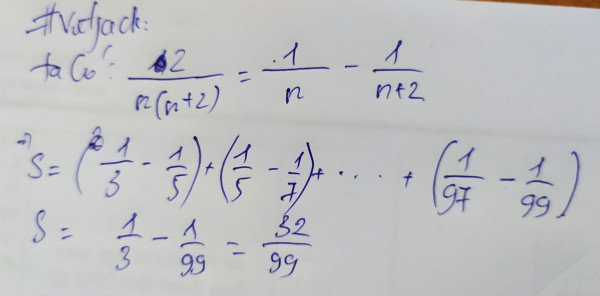 #VugJack:
ta Có: 2/n(n+2) = 1/n - 1/n+2
=> S = (1/3 - 1/5) + (1/5 - 1/7) + .... + (1/97 - 1/99)
S = 1/3 - 1/99 = 32/99